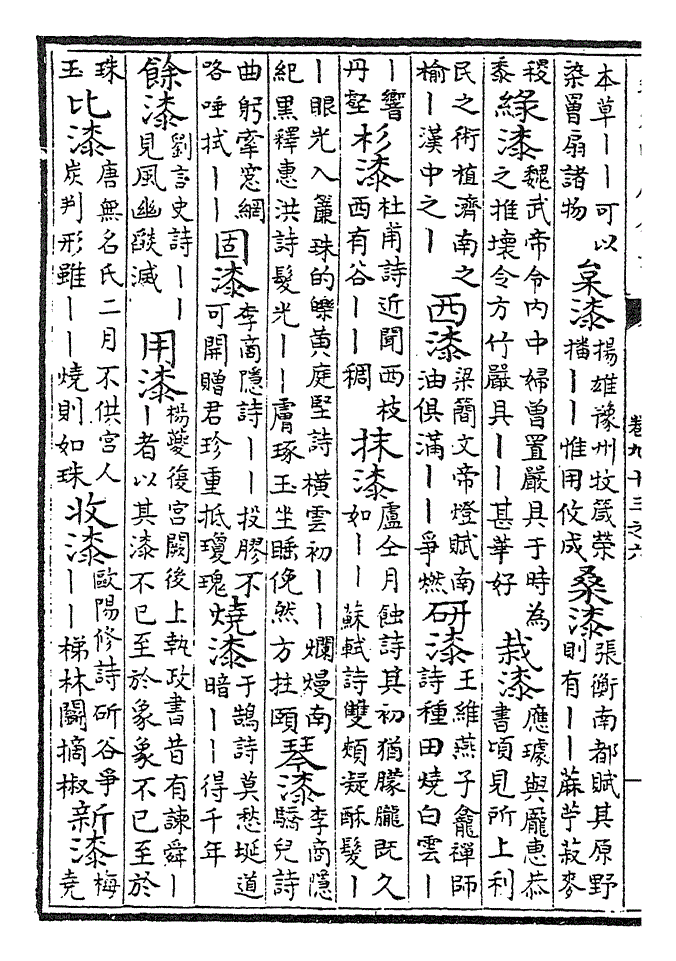 本草｜｜可以染罾扇諸物 枲漆 揚雄豫州牧箴榮播｜｜惟用攸成 桑漆 張衡南都賦其原野則有｜｜蔴苧菽麥
稷黍 綠漆 魏武帝令內中婦曾置嚴具于時為之推壞令方竹嚴具｜｜甚華好 栽漆 應璩與龐惠恭書頃見所上利
民之術植濟南之榆｜漢中之｜ 西漆 梁簡文帝燈賦南油俱滿｜｜爭燃 研漆 王維燕子龕禪師詩種田燒白雲｜
｜響丹壑 杉漆 杜甫詩近聞西枝西有谷｜｜稠 抹漆 盧仝月蝕詩其初猶朦朧既久如｜｜ 蘇軾詩雙頰凝酥髮｜
｜眼光入簾珠的皪黃庭堅詩橫雲初｜｜爛熳南紀黑釋惠洪詩髮光｜｜膚琢玉坐睡俛然方拄頤 琴漆 李商隱驕兒詩
曲躬牽窓網咯唾拭｜｜ 固漆 李商隱詩｜｜投膠不可開贈君珍重抵瓊瑰 燒漆 于鵠詩莫愁埏道暗｜｜得千年
餘漆 劉言史詩｜｜見風幽燄滅 用漆 楊夔復宮闕後上執政書昔有諫舜｜｜者以其漆不已至於象象不已至於
珠玉 比漆 唐無名氏二月不供宮人炭判形雖｜｜燒則如珠 收漆 歐陽修詩斫谷爭｜｜梯林鬭摘椒 新漆 梅堯
卷九十三之六